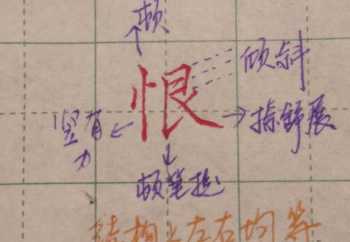 顿
恨
倾斜
竖有力
捺舒展
顿笔提
结构：左右均等